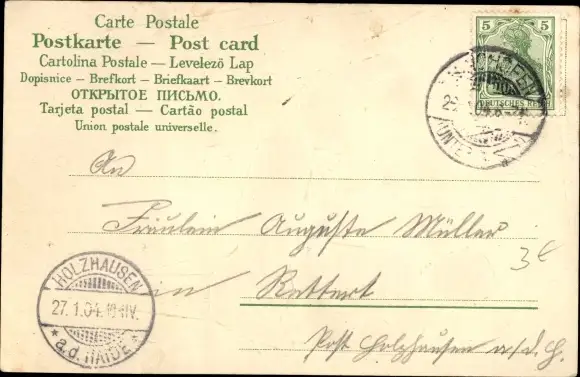 Carte Postale
Postkarte — Post card
Cartolina Postale — Levelező Lap
Dopisnice — Brefkort — Briefkaart — Brevkort
ОТКРЫТОЕ ПИСЬМО.
Tarjeta postal — Cartão postal
Union postale universelle.
5 5
DEUTSCHES REICH
An
Fräulein Auguste Müller
in Rettert
Post Holzhausen a/d. H.
3€
HOLZHAUSEN
27.1.04.
* a.d. HAIDE *